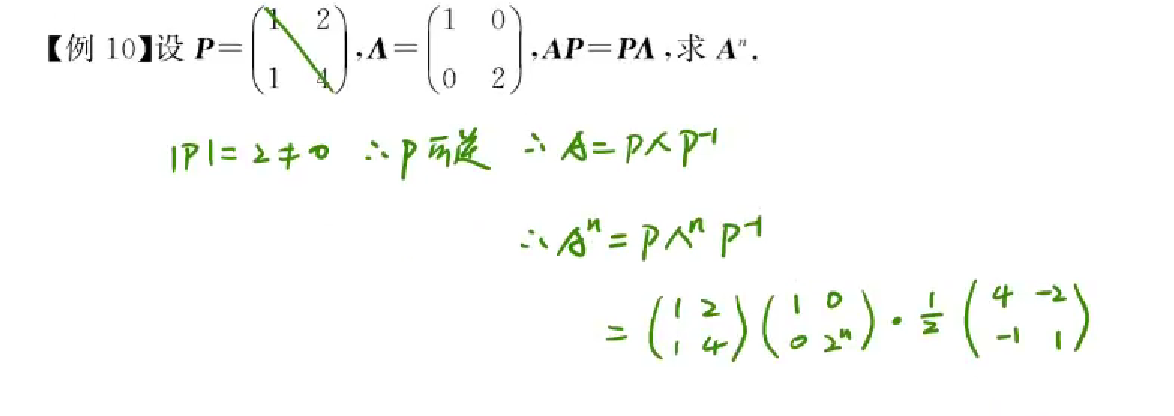 【例 10】设 P=(1 2 1 4),Λ=(1 0 0 2),AP=PΛ,求 Aⁿ.
|P|=2≠0 ∴P可逆 ∴A=PΛP⁻¹
∴Aⁿ=PΛⁿP⁻¹
=(1 2 1 4)(1 0 0 2ⁿ)·1/2(4 -2 -1 1)